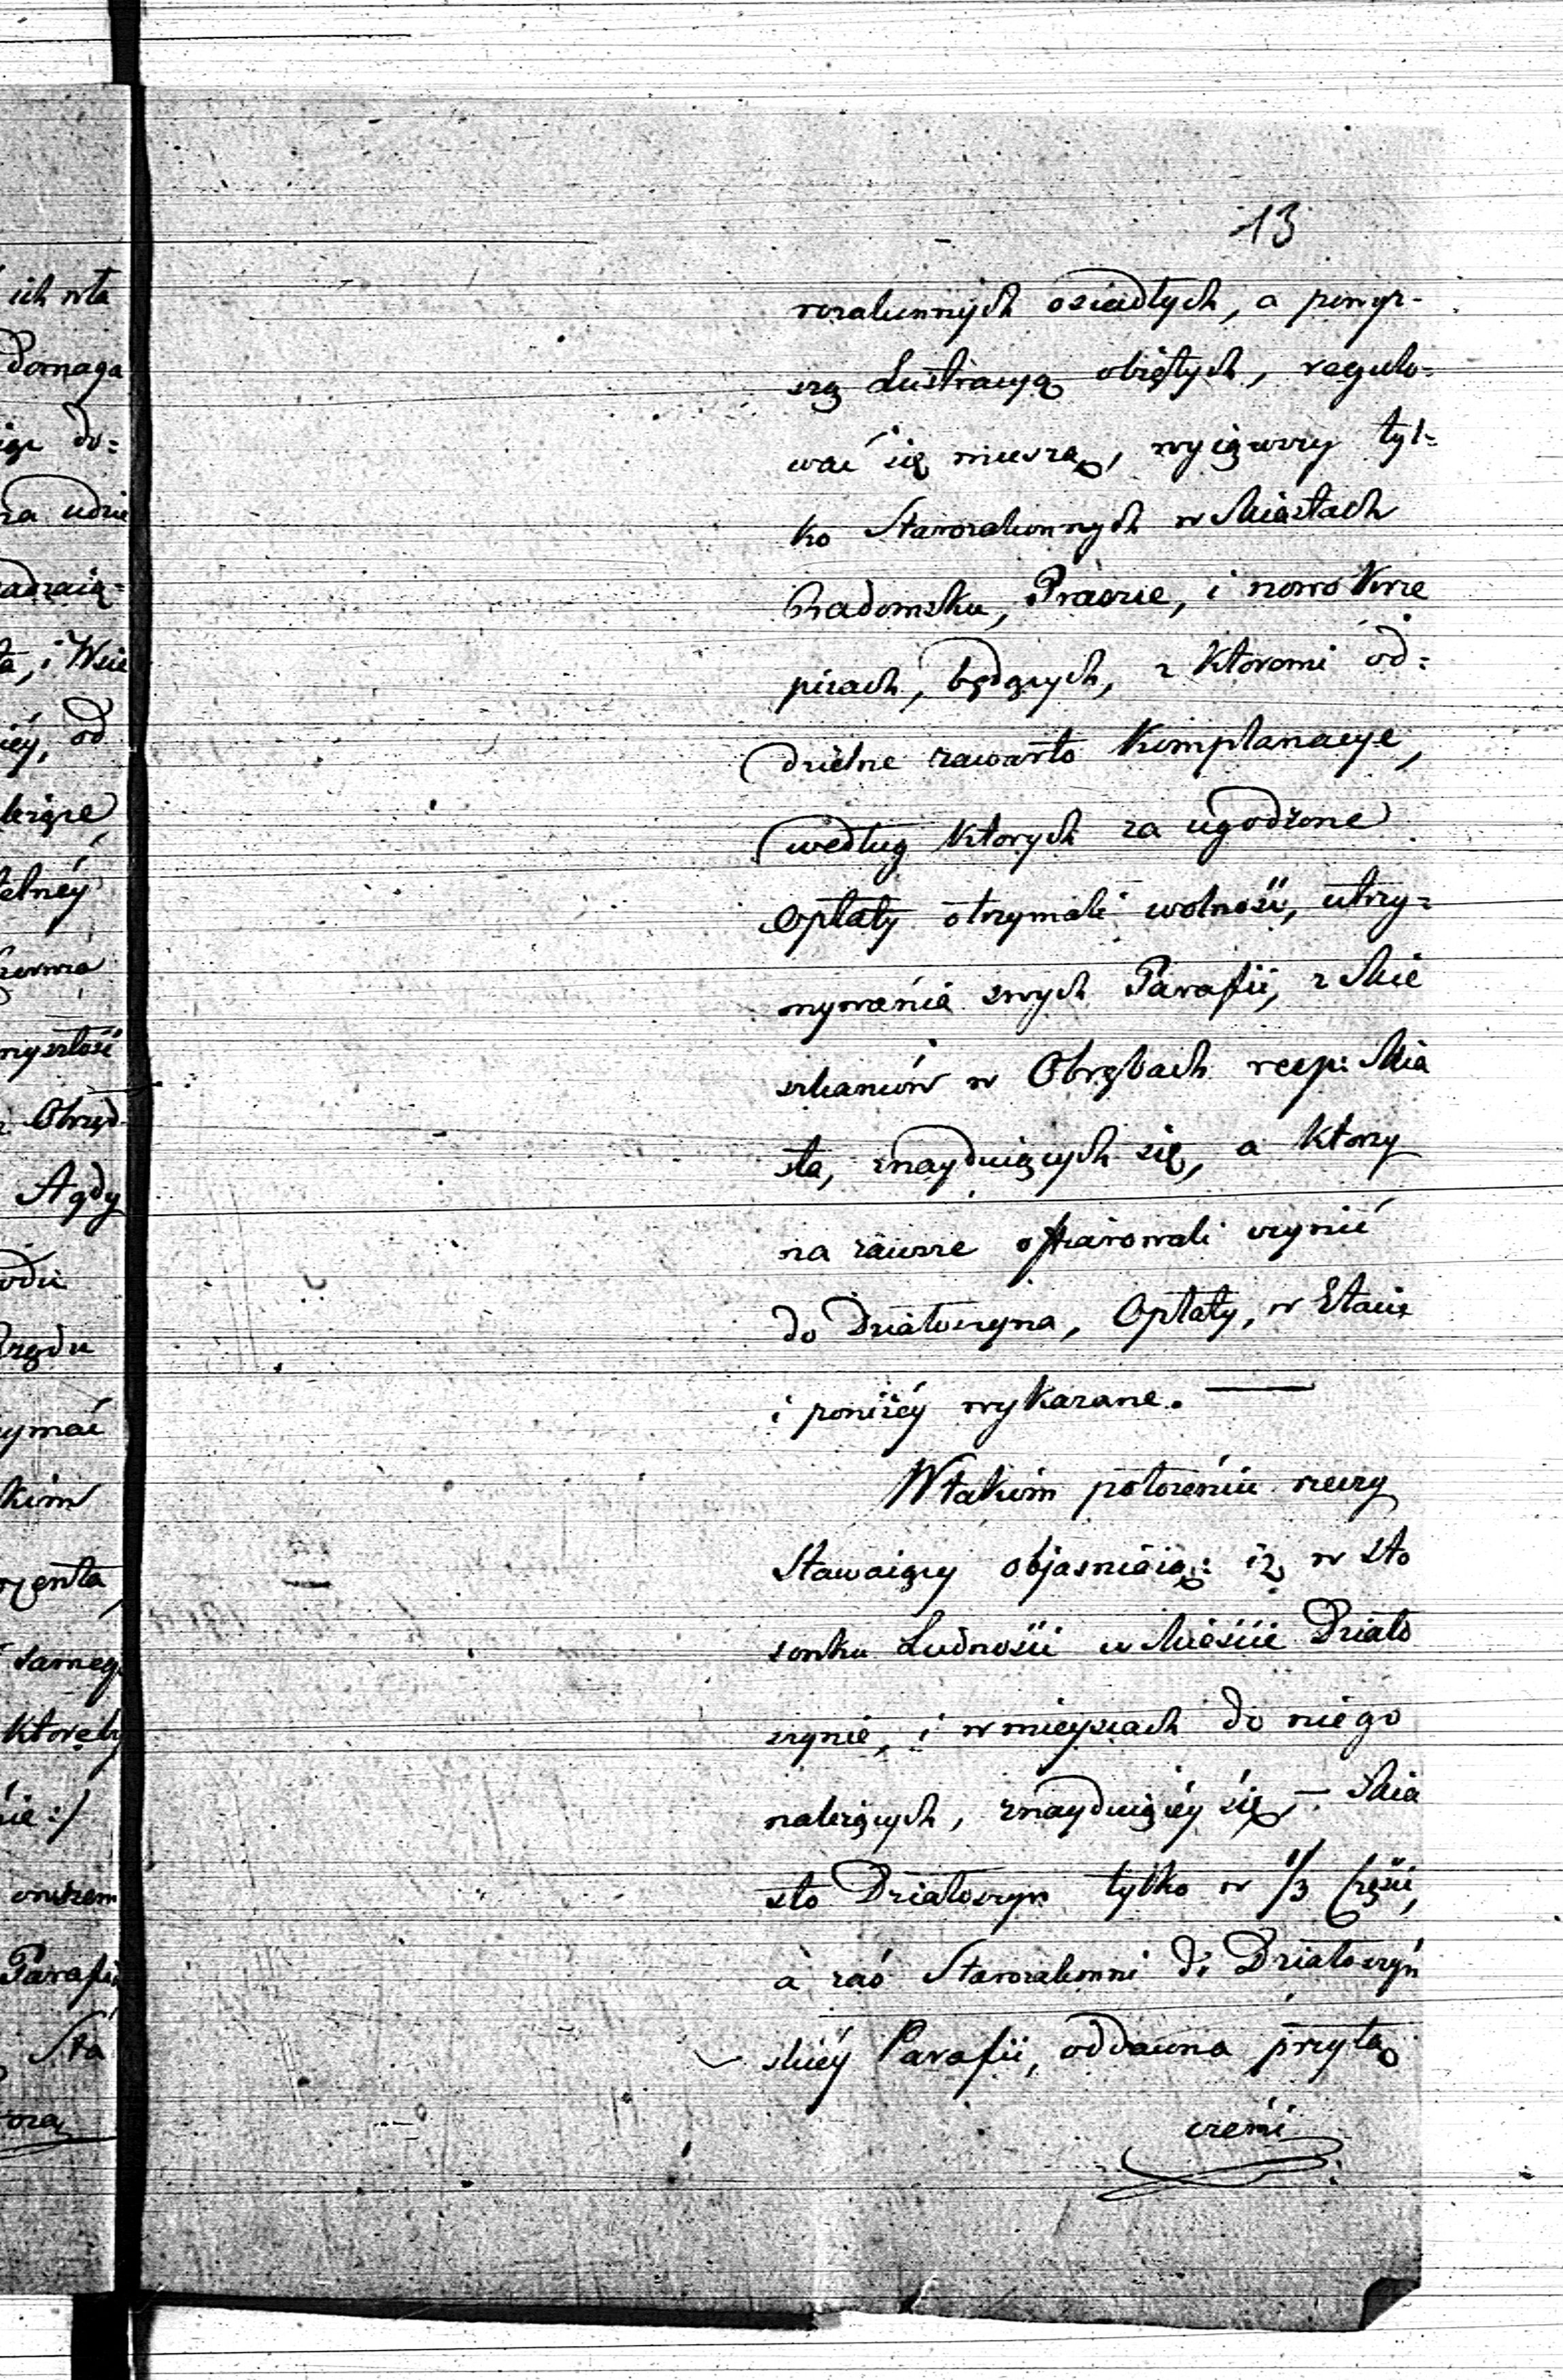 13
rozakonnych osiadłych, a powyż-
szą Lustracyą obiętych, regulo=
wać się muszą, wyiąwszy tyl=
ko Starozakonnych w Miastach
Radomsku, Praszce, i nowo Krze
picach, będących, z Ktoremi od=
dzielne zawarto Komplanacye,
według Ktorych za ugodzone
Opłaty otrzymali wolność, utrzy=
mywania swych Parafii, z Mie
szkancow w Obrębach resp: Mia
sta, znayduiących się, a Ktorzy
na zawsze ofiarowali czynić
do Działoszyna, Opłaty, w Etacie
i poniżéy wykazane. —
W takim położeniu rzeczy
Stawaiący objasniaią: iż w sto
sonku Ludności w Mieście Działo
szynie, i w mieyscach do niego
należących, znayduiącéy się, — Mia
sto Działoszyn tylko w 1/3 Części,
a zaś Starozakonni do Działoszyń
skiéy Parafii, oddawna przyłą
czeni
ich wła
Domaga
do=
udzie
i Wsie
od
telnéy
Obrzęd
A gdy
rzędu
ymać
kim
samego
Ktoreby
nie :/
Parafii
Sta